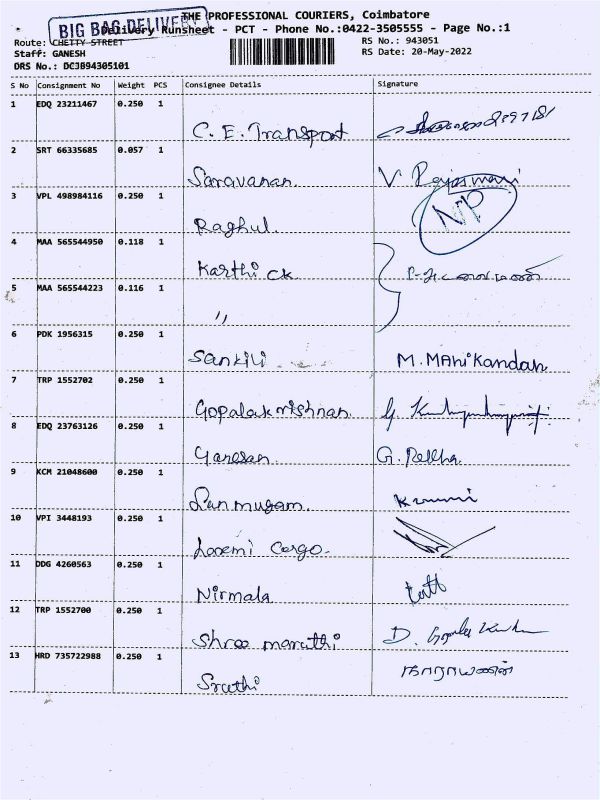 THE PROFESSIONAL COURIERS, Coimbatore
BIG BAG DELIVERY
Delivery Runsheet - PCT - Phone No.:0422-3505555 - Page No.:1
Route: CHETTY STREET RS No.: 943051
Staff: GANESH RS Date: 20-May-2022
DRS No.: DCJB94305101
S No Consignment No Weight PCS Consignee Details Signature
1 EDQ 23211467 0.250 1
C. E. Transport
2 SRT 66335685 0.057 1
Saravanan V
3 VPL 498984116 0.250 1
NP
Raghul
4 MAA 565544950 0.118 1
Karthi ck
5 MAA 565544223 0.116 1
"
6 PDK 1956315 0.250 1
Sankili M. MANikandan
7 TRP 1552702 0.250 1
Gopalakrishnan G.
8 EDQ 23763126 0.250 1
Ganesan G.
9 KCM 21048600 0.250 1
Sanmugam
10 VPI 3448193 0.250 1
Cargo
11 DDG 4260563 0.250 1
Nirmala
12 TRP 1552700 0.250 1
Shree maruthi D.
13 HRD 735722988 0.250 1
நாராயணன்